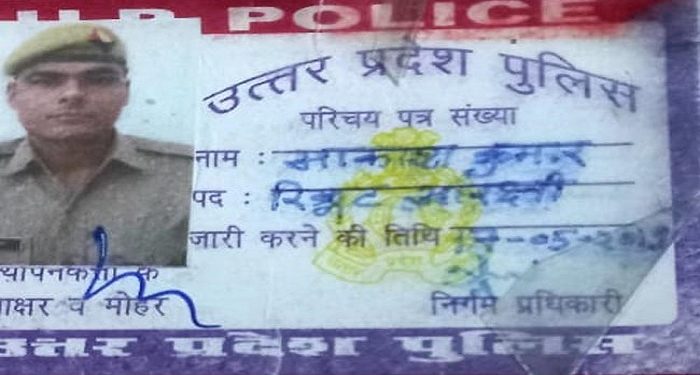 U.P. POLICE
उत्तर प्रदेश पुलिस
परिचय पत्र संख्या
नाम : आकाश कुमार
पद : रिक्रूट आरक्षी
जारी करने की तिथि -05-2019
के
व मोहर
निर्गम प्रधिकारी
उत्तर प्रदेश पुलिस